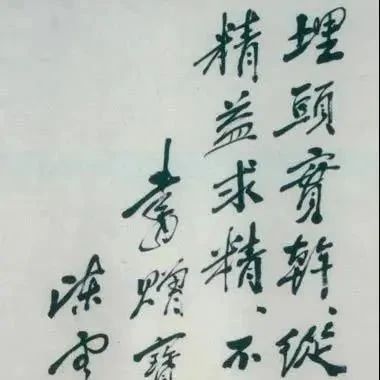 埋頭實幹、縱
精益求精、不
書贈寶
陳雲